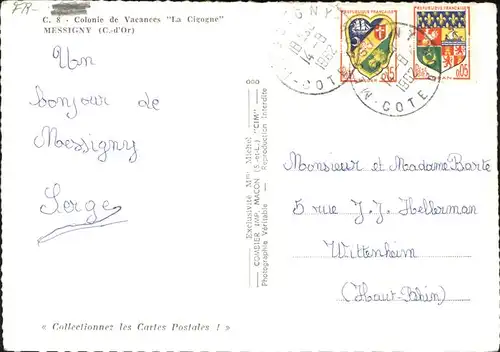 FR-
C. 8 - Colonie de Vacances "La Cigogne"
MESSIGNY (C.-d'Or)
Un
bonjour de
Messigny
Serge
« Collectionnez les Cartes Postales ! »
Exclusivité Mme Michel
COMBIER IMP. MACON (S.-et-L.) "CIM"
Photographie Véritable - Reproduction Interdite
REPUBLIQUE FRANÇAISE
0,15
REPUBLIQUE FRANÇAISE
0,05
14-9
1962
COTE D
Monsieur et Madame Barte
5 rue J. J. Hellerman
Wittenheim
(Haut-Rhin)